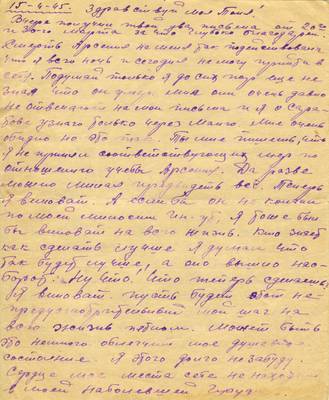 15-4-45. Здравствуй моя Тоня!
Вчера получил твой два письма от 20го
и 30го марта за что глубоко благодарен.
Смерть Арсения на меня так подействовала
что я всю ночь и сегодня не могу прийти в
себя. Подумай только я до сих пор еще не
знал что он умер. Мне они очень давно
не отвечают на мои письма и я о
узнаю только через Мне очень
обидно но это так. Ты мне пишешь, что
я не принял соответствующих мер по
отношению учебы Арсения. Да разве
можно было предвидеть все. Теперь
я виноват. А если бы он не кончил
по моей милости ин-ут, я тоже был
бы виноват на всю жизнь. Кто знает
как сделать лучше я думал что
так будет лучше, а оно вышло нао-
борот. Ну что! Что теперь сделаешь,
я виноват. пусть будет этот не-
предусмотрительный мой шаг на
всю жизнь пятном. Может быть
это немного облегчит мое душевное
состояние. Я этого долго не забуду.
Сердце мое места себе не находит
в моей наболевшей груди.